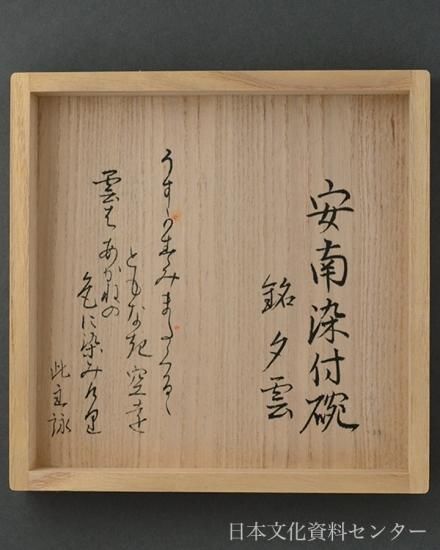 安南染付碗
銘 夕雲
うすかすみまたくるゝ
ともなき空を
雲はあかねの
色に染みけり
此主詠
日本文化資料センター